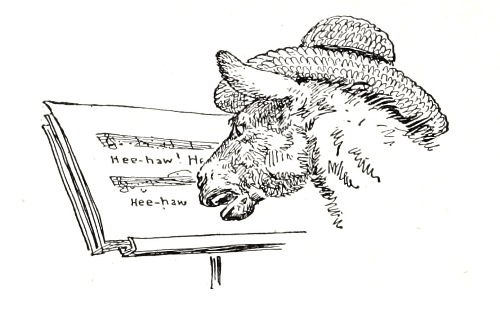 Hee-haw! H
Hee-haw